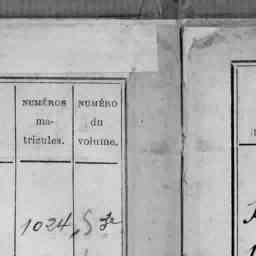 NUMÉROS
ma-
tricules.
NUMÉRO
du
volume.
1024